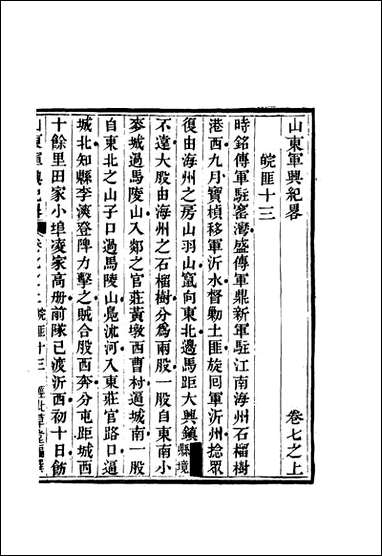 山東軍興紀畧 卷七之上
皖匪十三
時銘傳軍駐窰灣盛傳軍鼎新軍駐江南海州石榴樹
港西九月寶楨移軍沂水督勦土匪旋回軍沂州捻眾
復由海州之房山羽山竄向東北邊馬距大興鎮縣境
不遠大股由海州之石榴樹分爲兩股一股自東南小
麥城過馬陵山入郯之官莊黃墩西曹村逼城南一股
自東北之山子口過馬陵山鳧流河入東莊官路口逼
城北知縣李溱登陴力擊之賊合股西奔分屯距城西
十餘里田家小埠凌家高册前隊已渡沂西初十日飭
山東軍興紀畧 卷七之上 皖匪十三